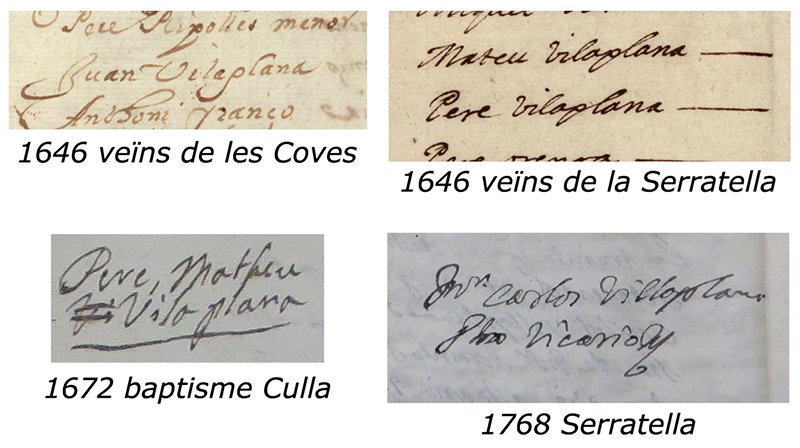 Pere Ripolles menor
Juan Vilaplana
Anthoni franco
1646 veïns de les Coves
Mateu vilaplana
Pere vilaplana
1646 veïns de la Serratella
Pere, Matheu
Vilaplana
1672 baptisme Culla
Mn Carlos Villaplana
Vicario
1768 Serratella